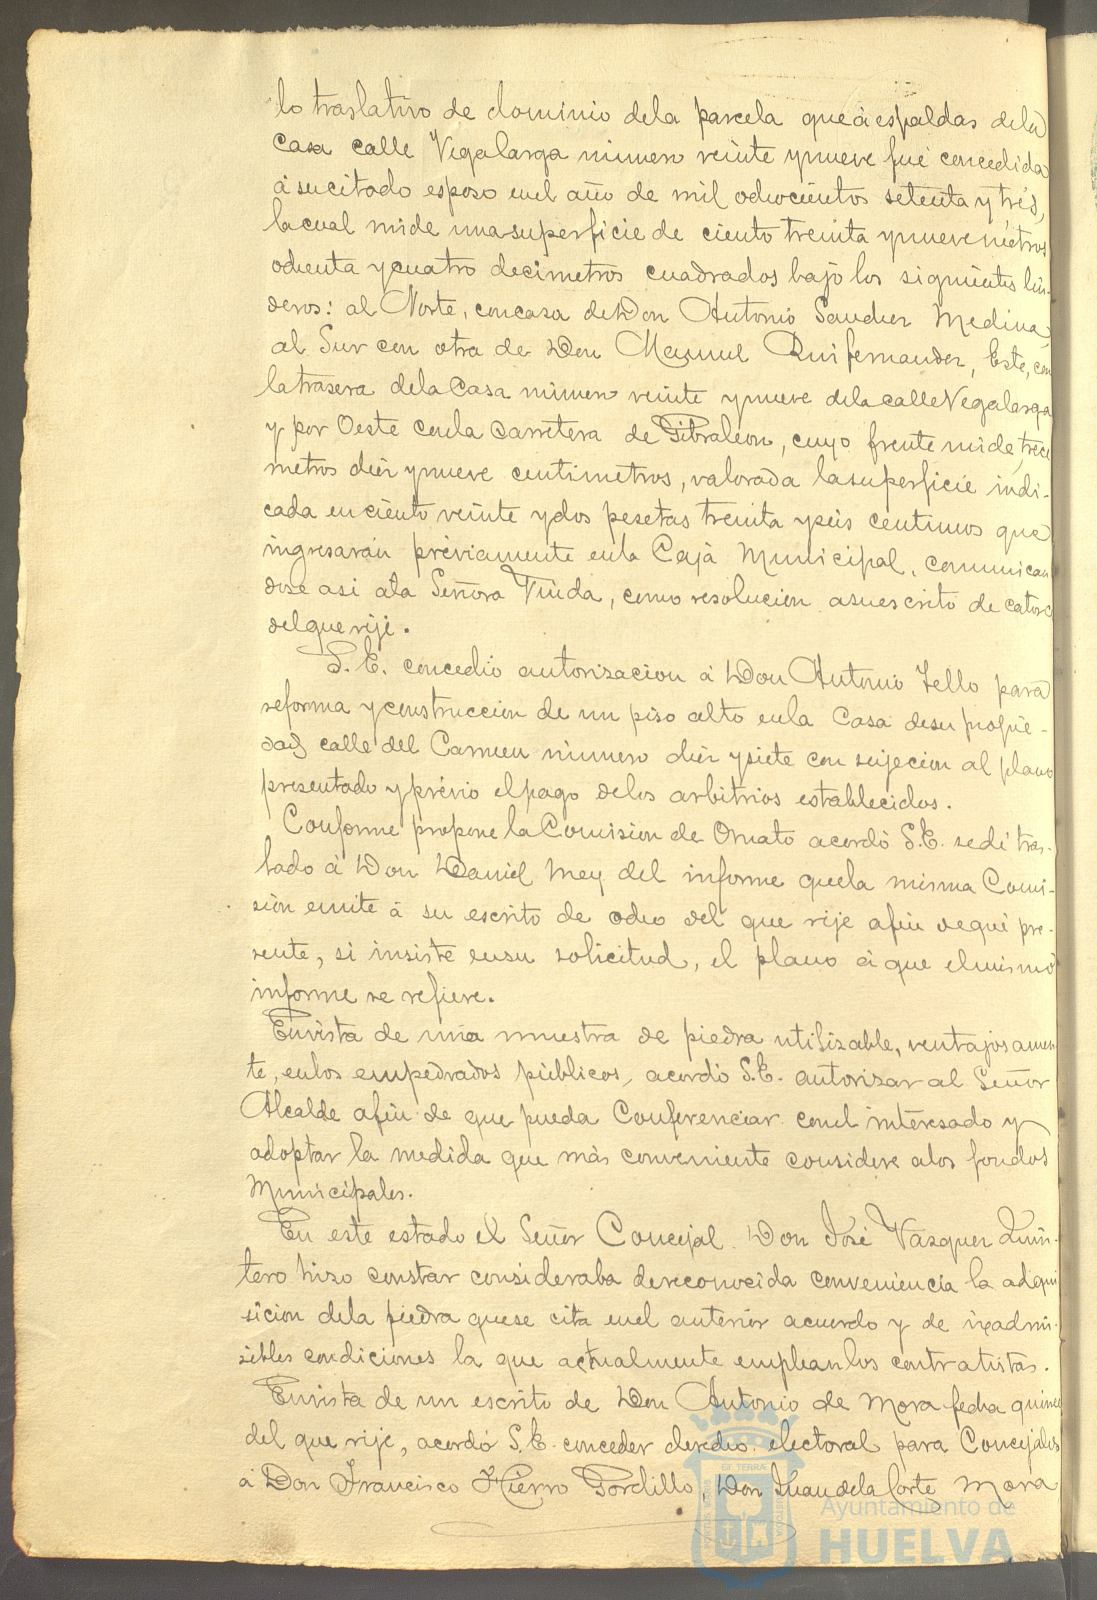 lo traslativo de dominio dela parcela que á espaldas dela
Casa calle Vegalarga número veinte y nueve fué concedida
á su citado esposo enel año de mil ochocientos setenta y trés,
la cual mide una superficie de ciento treinta y nueve métros
ochenta y cuatro decimetros cuadrados bajo los siguientes lin-
deros: al Norte, con casa de Don Antonio Sanchez Medina,
al Sur con otra de Don Manuel Ruifernandez, Este, con
la trasera dela Casa número veinte y nueve dela calle Vegalarga
y por Oeste conla Carretera de Gibraleon, cuyo frente mide, trece
metros diez y nueve centimetros, valorada la superficie indi-
cada en ciento veinte y dos pesetas treinta y séis centimos que
ingresarán préviamente enla Caja Municipal, comunican
dose asi ala Señora Viuda, como resolucion asu escrito de catorce
del que rije.
S. E. concedió autorizacion á Don Antonio Tello para
reforma y construccion de un piso alto enla Casa desu propie-
dad calle del Carmen número diez y siete con sujecion al plano
presentado y prévio el pago delos arbitrios establecidos.
Conforme propone la Comision de Ornato acordó S.E. se dé tras-
lado á Don Daniel Mey del informe quela misma Comi-
sión emite á su escrito de ocho del que rije afin de qué pre-
sente, si insiste ensu solicitud, el plano á que el mismo
informe se refiere.
En vista de una muestra de piedra utilizable, ventajosamen-
te, enlos empedrados públicos, acordó S.E. autorizar al Señor
Alcalde afin de que pueda Conferenciar conel interesado y
adoptar la medida que más conveniente considere alos fondos
Municipales.
En este estado el Señor Concejal Don José Vazquez Quin-
tero hizo constar consideraba de reconocida conveniencia la adqui
sicion dela piedra quese cita enel anterior acuerdo y de inadmi-
sibles condiciones la que actualmente emplean los contratistas.
En vista de un escrito de Don Antonio de Mora fecha quince
del que rije, acordó S.E. conceder derecho electoral para Concejales
á Don Francisco Hierro Gordillo, Don Juan dela Corte Mora
Ayuntamiento de
HUELVA